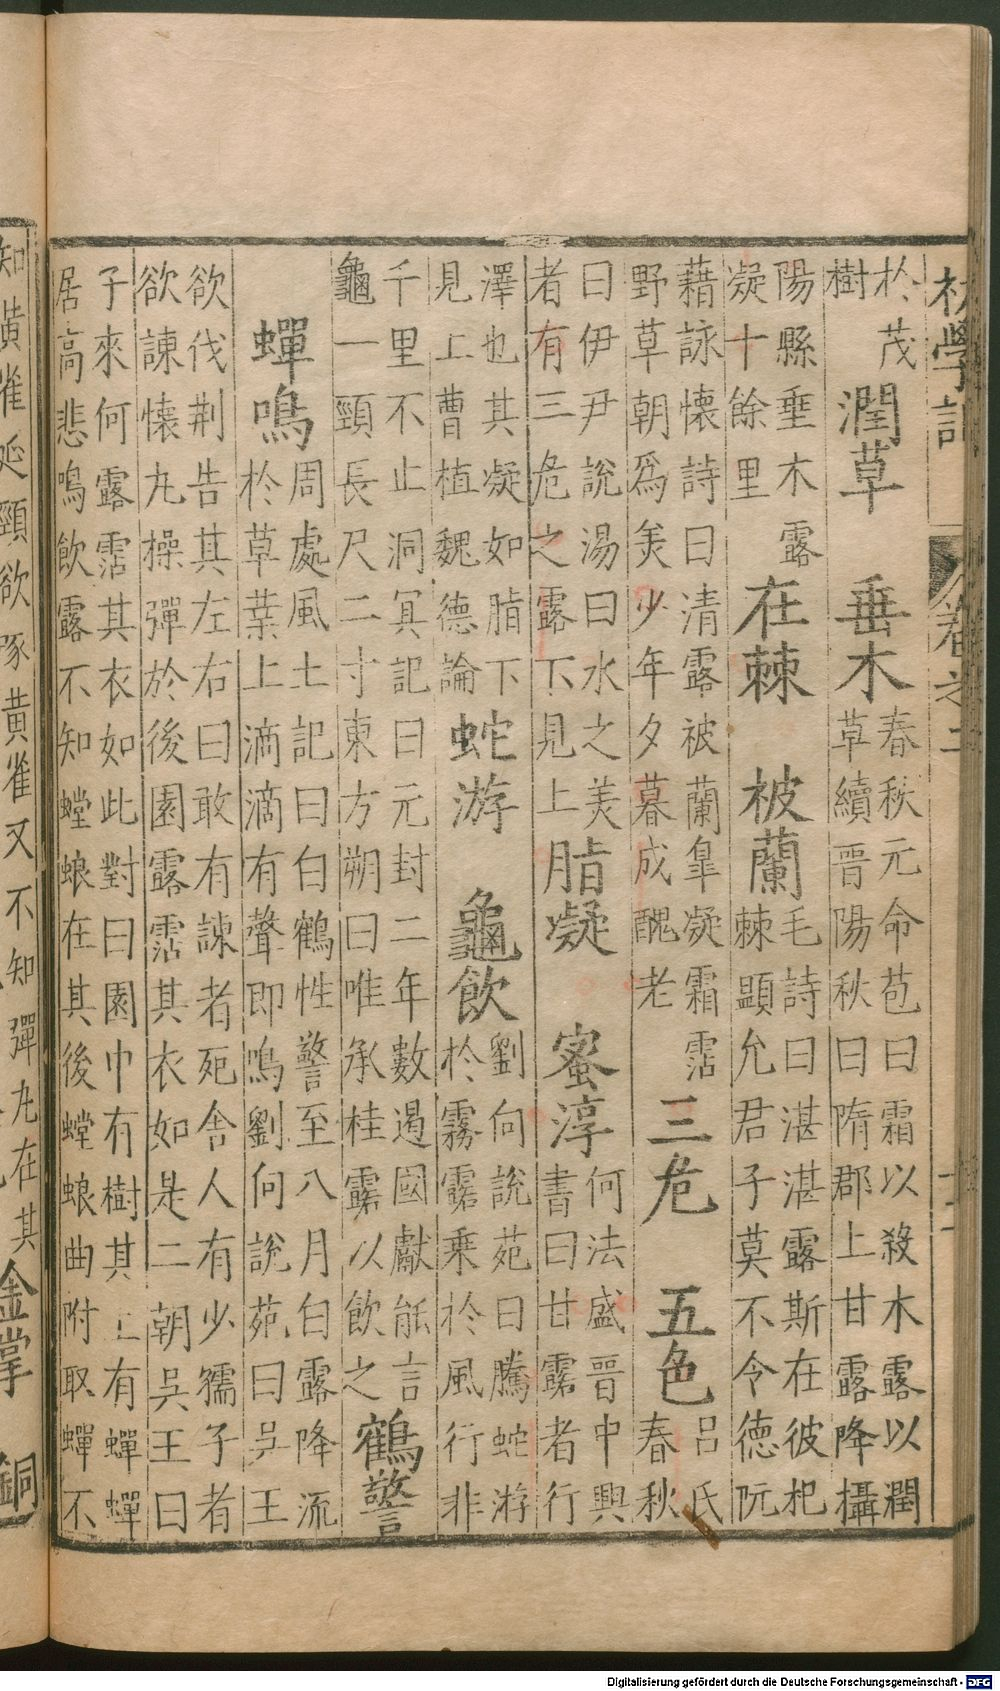 初學記 卷之二 十二
於茂
樹
潤草 垂木
春秋元命苞曰霜以殺木露以潤
草續晉陽秋曰隋郡上甘露降攝
陽縣垂木露
凝十餘里
在棘 被蘭
毛詩曰湛湛露斯在彼杞
棘顯允君子莫不令德阮
藉詠懷詩曰清露被蘭皐凝霜霑
野草朝爲美少年夕暮成醜老
三危 五色
呂氏
春秋
曰伊尹說湯曰水之美
者有三危之露下見上
脂凝 蜜淳
何法盛晉中興
書曰甘露者行
澤也其凝如脂下
見上曹植魏德論
蛇游 龜飲
劉向說苑曰騰蛇游
於霧露乘於風行非
千里不止洞冥記曰元封二年數過國獻能言
龜一頸長尺二寸東方朔曰唯承桂露以飲之
鶴警
蟬鳴
周處風土記曰白鶴性警至八月白露降流
於草葉上滴滴有聲即鳴劉向說苑曰吳王
欲伐荆告其左右曰敢有諫者死舍人有少孺子者
欲諫懷丸操彈於後園露霑其衣如是二朝吳王曰
子來何露霑其衣如此對曰園中有樹其上有蟬蟬
居高悲鳴飲露不知螳蜋在其後螳蜋曲附取蟬不
知黃雀延頸欲啄黃雀又不知彈丸在其
金掌 銅
Digitalisierung gefördert durch die Deutsche Forschungsgemeinschaft - DFG